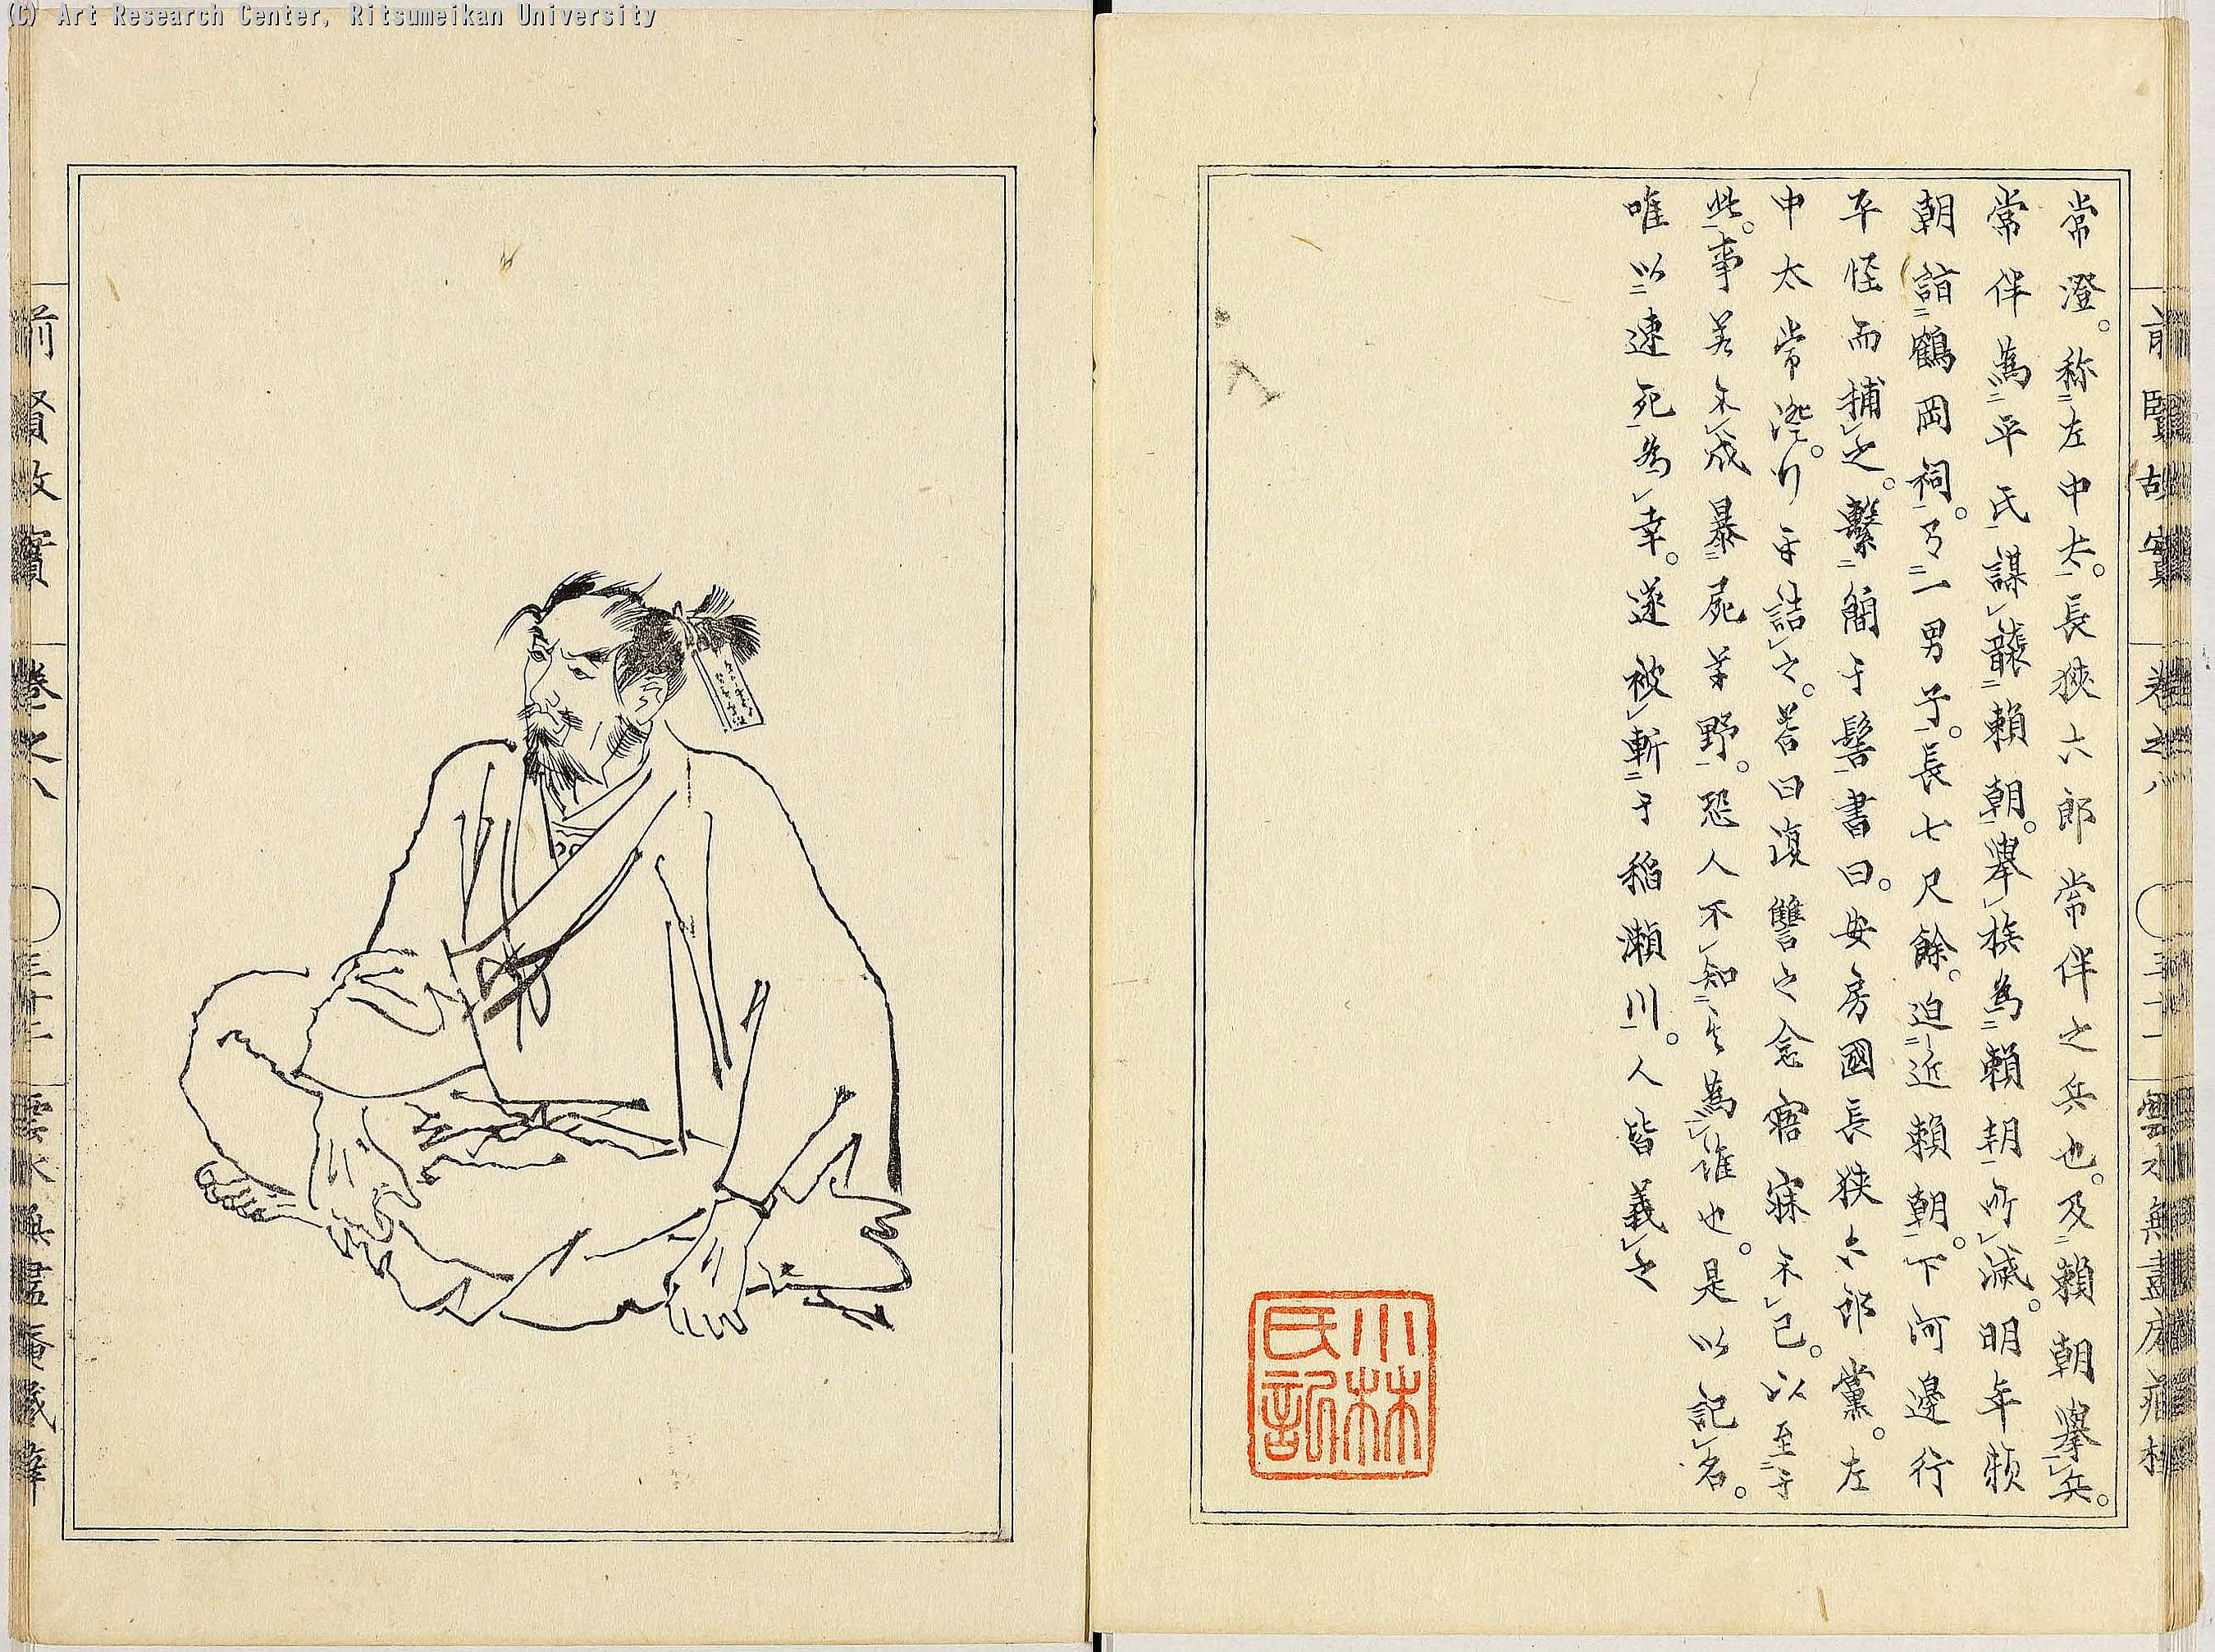 (C) Art Research Center, Ritsumeikan University
前賢故實 卷之八 三十一 雲水無盡庵藏梓
常澄。称左中太。長狹六郎常伴之兵也。及賴朝擧兵。
常伴為平氏謀襲賴朝。擧族為賴朝所滅。明年賴
朝詣鶴岡祠。有一男子。長七尺餘。迫近賴朝。下河邊行
平怪而捕之。繫簡于髻書曰。安房國長狹六郎黨。左
中太常澄。行平詰之。荅曰復讐之念寤寐不已。以至于
此。事若不成暴屍草野。恐人不知其為誰也。是以記名。
唯以速死為幸。遂被斬于稻瀬川。人皆義之
小林
氏記
前賢故實 卷之八 三十二 雲水無盡庵藏梓